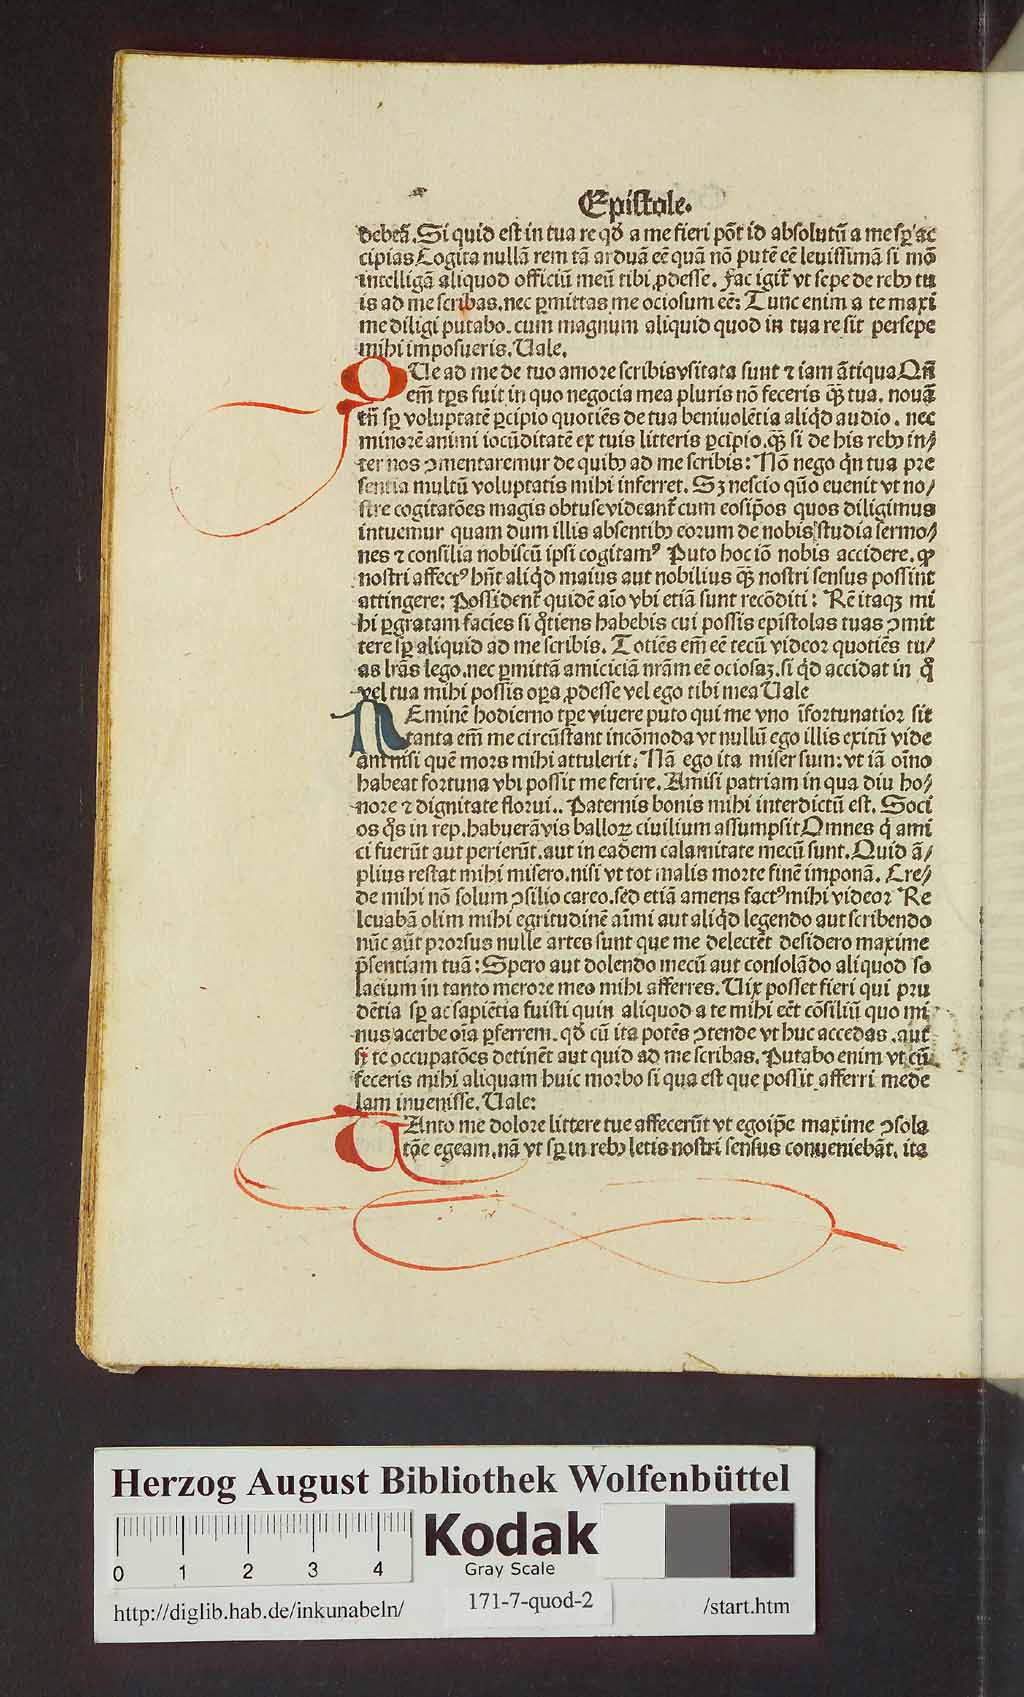 Epistole.
debeā. Si quid est in tua re qđ a me fieri pōt id absolutū a me sꝑ ac
cipias Cogita nullā rem tā arduā eē quā nō putē eē leuissimā si mō
intelligā aliquod officiū meū tibi ꝓdesse. Fac igit̃ vt sepe de rebꝰ tu
is ad me scribas. nec ꝑmittas me ociosum eē: Tunc enim a te maxi
me diligi putabo. cum magnum aliquid quod in tua re sit persepe
mihi imposueris. Uale.
QUe ad me de tuo amore scribis vsitata sunt ⁊ iam ātiqua Qn̄
em̄ tp̄s fuit in quo negocia mea pluris nō feceris qꝫ̄ tua. nouā
tn̄ sꝑ voluptatē ꝑcipio quotiēs de tua beniuolētia aliqd̛ audio. nec
minorē animi iocūditatē ex tuis litteris ꝑcipio. qꝫ̄ si de his rebꝰ in/
ter nos ꝯmentaremur de quibꝰ ad me scribis: Nō nego qn̛ tua pre
sentia multū voluptatis mihi inferret. Sꝫ nescio quō euenit vt no/
stre cogitatōes magis obtuse videant̃ cum eos ip̄os quos diligimus
intuemur quam dum illis absentibꝰ eorum de nobis studia sermo/
nes ⁊ consilia nobiscū ipsi cogitamꝰ Puto hoc iō nobis accidere. ꝙ
nostri affectꝰ hn̄t aliqd̛ maius aut nobilius qꝫ̄ nostri sensus possint
attingere: Possident quidē aīo vbi etiā sunt recōditi: Rē itaqꝫ mi
hi ꝑgratam facies si qͦtiens habebis cui possis epistolas tuas ꝯmit
tere sꝑ aliquid ad me scribis. Totiēs em̄ eē tecū videor quotiēs tu/
as lr̄as lego. nec ꝑmittā amiciciā nr̄am eē ociosaꝫ. si qd̛ accidat in qͦ
vel tua mihi possis oꝑa ꝓdesse vel ego tibi mea Uale
NEminē hodierno tꝑe viuere puto qui me vno īfortunatior sit
tanta em̄ me circūstant incōmoda vt nullū ego illis exitū vide
am nisi quē mors mihi attulerit: Nā ego ita miser sum: vt iā oīno
habeat fortuna vbi possit me ferire. Amisi patriam in qua diu ho/
nore ⁊ dignitate florui.. Paternis bonis mihi interdictū est. Soci
os qͦs in rep. habuerā vis balloꝝ ciuilium assumpsit Omnes q̛ ami
ci fuerūt aut perierūt. aut in eadem calamitate mecū sunt. Quid ā/
plius restat mihi misero. nisi vt tot malis morte finē imponā. Cre/
de mihi nō solum ꝯsilio careo. sed etiā amens factꝰ mihi videor Re
leuabā olim mihi egritudinē aīmi aut aliqd̛ legendo aut scribendo
nūc aūt prorsus nulle artes sunt que me delectēt desidero maxime
p̄sentiam tuā: Spero aut dolendo mecū aut consolādo aliquod so
lacium in tanto merore meo mihi afferres. Uix posset fieri qui pru
dētia sꝑ ac sapiētia fuisti quin aliquod a te mihi eēt cōsiliū quo mi
nus acerbe oīa ꝑferrem. qđ cū ita potēs ꝯtende vt huc accedas. aut
si te occupatōes detinēt aut quid ad me scribas. Putabo enim vt cū
feceris mihi aliquam huic morbo si qua est que possit afferri mede
lam inuenisse. Uale:
TAnto me dolore littere tue affecerūt vt ego ip̄e maxime ꝯsola
tōe egeam. nā vt sꝑ in rebꝰ letis nostri sensus conueniebāt. ita
Herzog August Bibliothek Wolfenbüttel
0 1 2 3 4
Kodak
Gray Scale
http://diglib.hab.de/inkunabeln/
171-7-quod-2
/start.htm